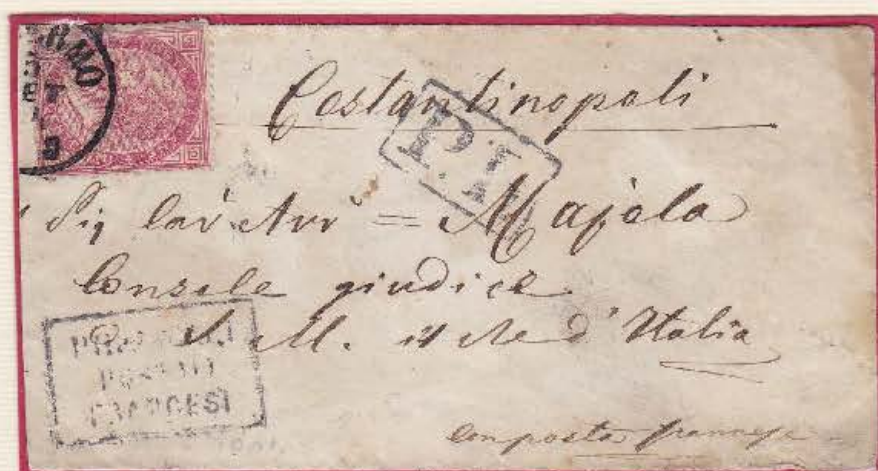 ERMO
Costantinopoli
P.I.
Sig Cav Avv = Majela
Console giudice
S. M. il Re d'Italia
PIROSCAFI
POSTALI
FRANCESI
con posta francese